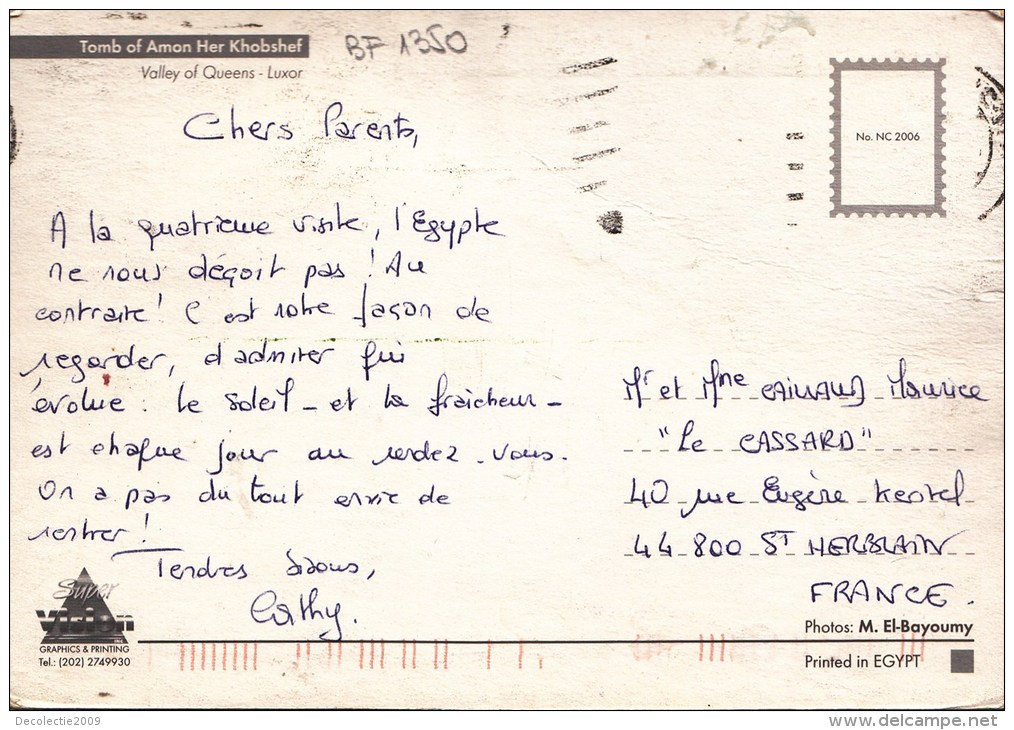 Tomb of Amon Her Khobshef
BF 1350
Valley of Queens - Luxor
No. NC 2006
Chers Parents,
A la quatrieme visite, l'Egypte
ne nous déçoit pas ! Au
contraire ! C'est notre façon de
regarder, d'admirer qui
évolue : le soleil - et la fraîcheur -
est chaque jour au rendez-vous.
On a pas du tout envie de
rentrer !
Tendres bisous,
Cathy.
Mr et Mme Maurice
"Le CASSARD"
40 rue Eugène
44 800 ST HERBLAIN
FRANCE.
Super
Vision
INC
GRAPHICS & PRINTING
Tel.: (202) 2749930
Photos: M. El-Bayoumy
Printed in EGYPT
Decolectie2009
www.delcampe.net